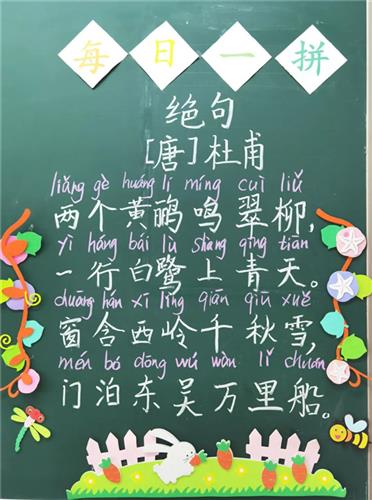 每日一拼
绝句
[唐]杜甫
liǎng gè huáng lí míng cuì liǔ
两个黄鹂鸣翠柳，
yì háng bái lù shàng qīng tiān
一行白鹭上青天。
chuāng hán xī lǐng qiān qiū xuě
窗含西岭千秋雪，
mén bó dōng wú wàn lǐ chuán
门泊东吴万里船。